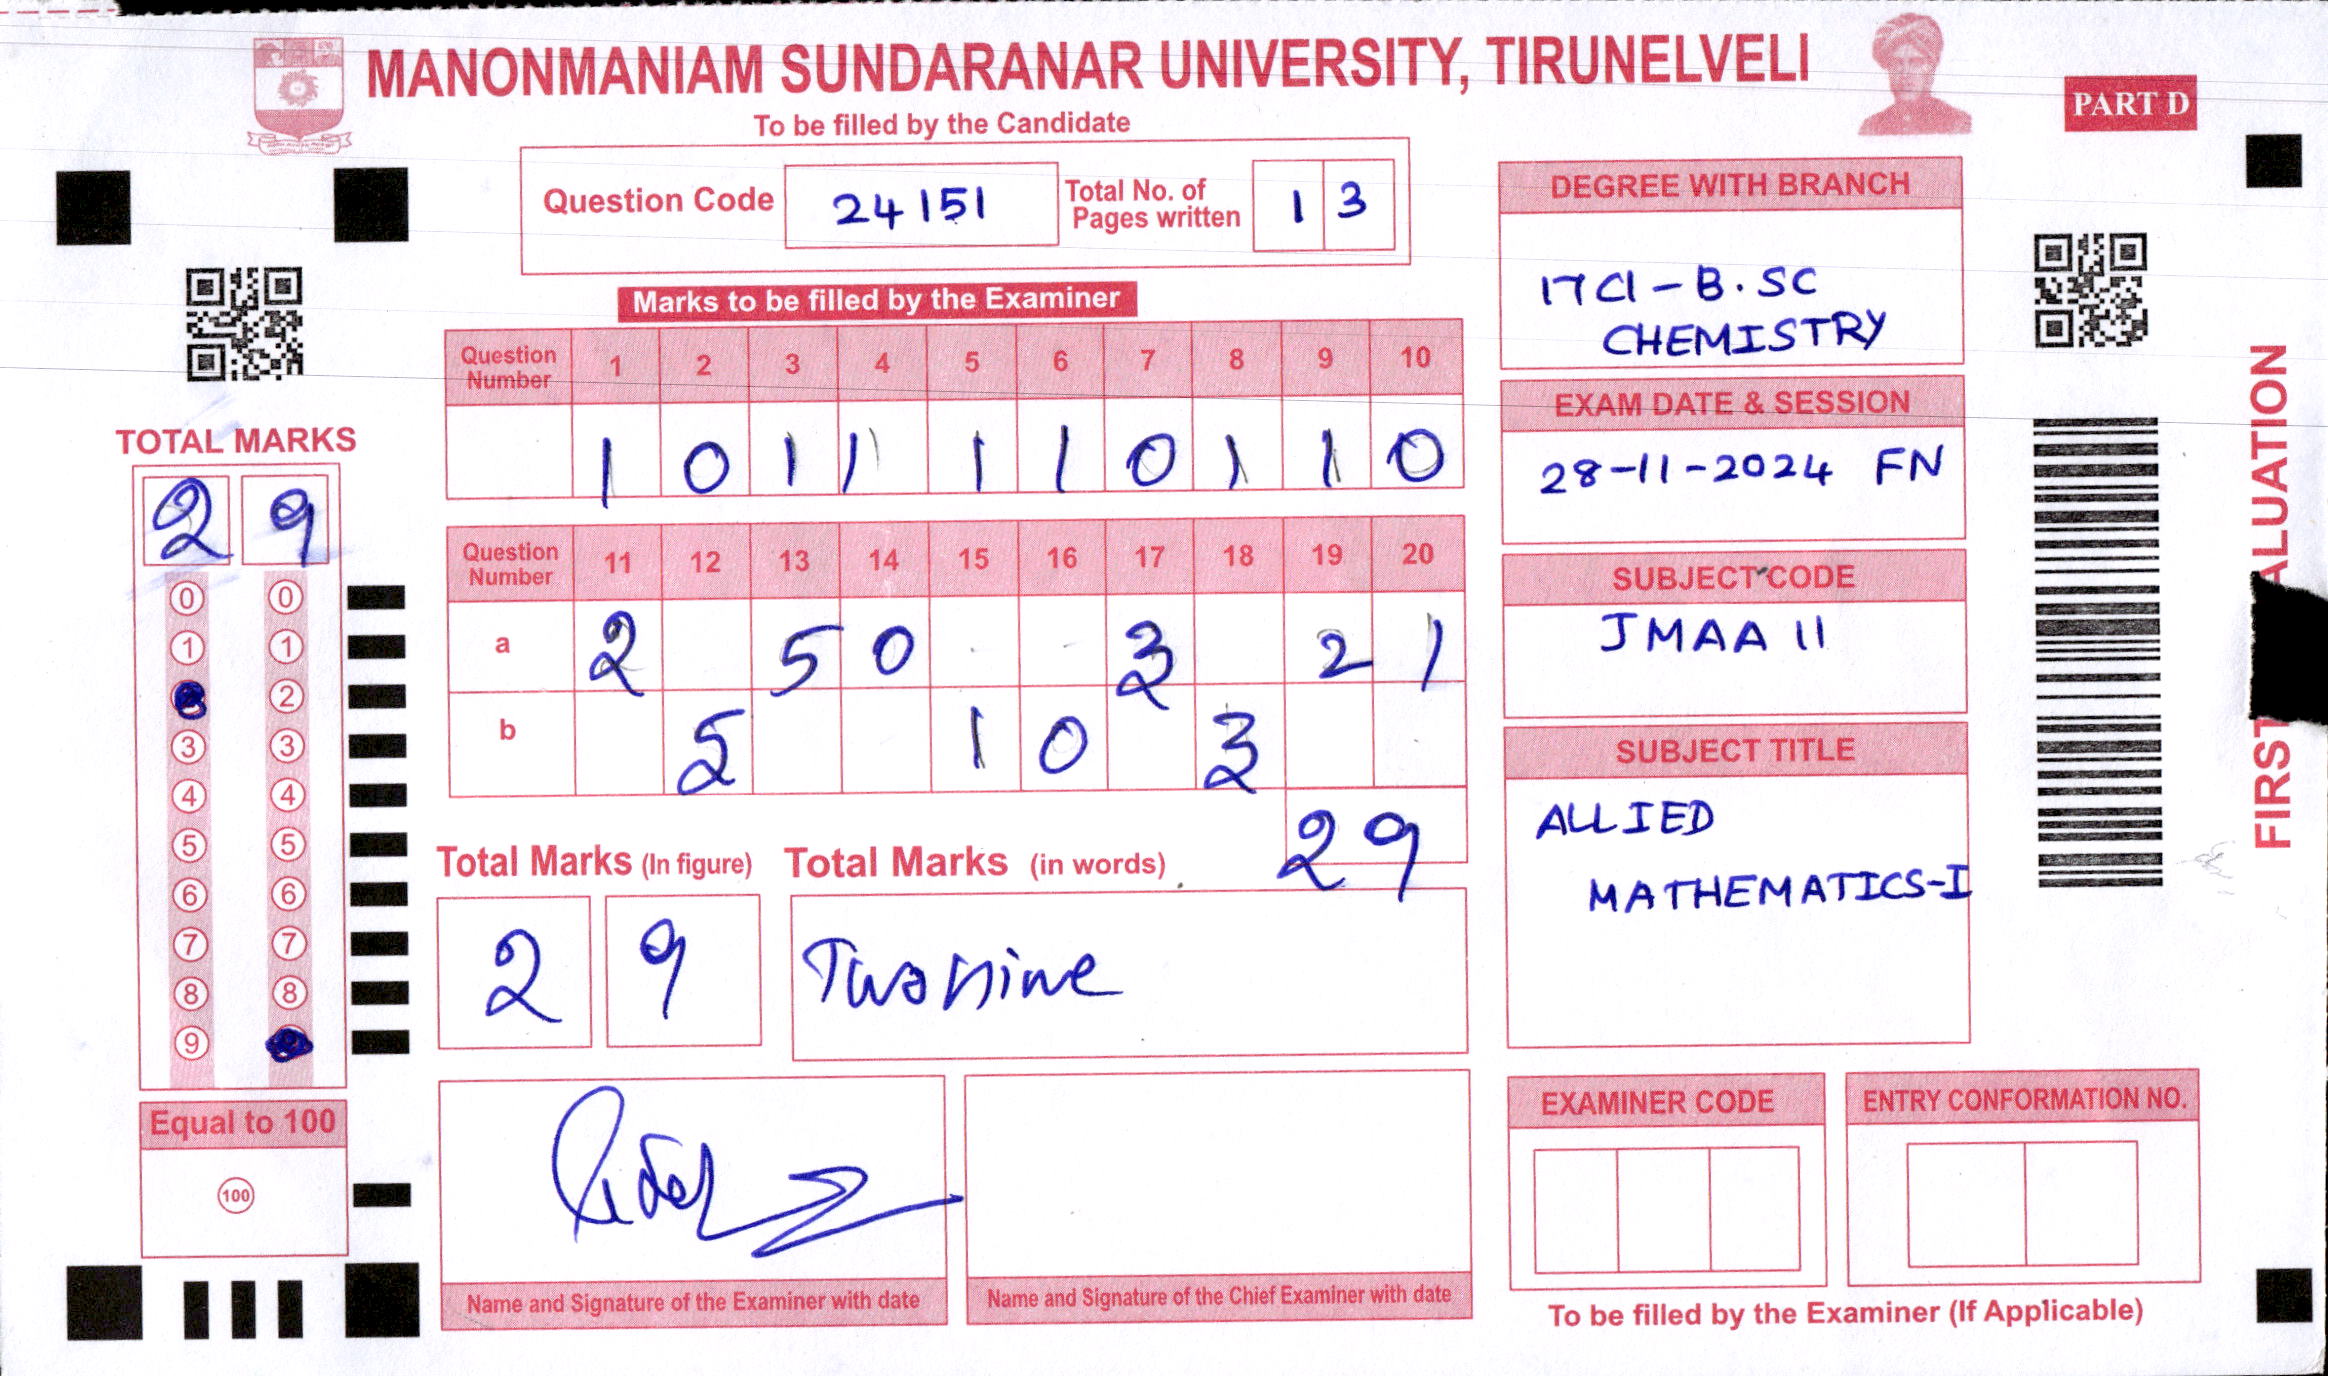 MANONMANIAM SUNDARANAR UNIVERSITY, TIRUNELVELI
PART D
To be filled by the Candidate
Question Code 24151 Total No. of Pages written 1 3
Marks to be filled by the Examiner
Question Number 1 2 3 4 5 6 7 8 9 10
1 0 1 1 1 1 0 1 1 0
Question Number 11 12 13 14 15 16 17 18 19 20
a 2 5 0 3 2 1
b 5 1 0 3
29
Total Marks (In figure) Total Marks (in words)
2 9 Two nine
Name and Signature of the Examiner with date
Name and Signature of the Chief Examiner with date
TOTAL MARKS
2 9
0 0
1 1
2
3 3
4 4
5 5
6 6
7 7
8 8
9
Equal to 100
100
DEGREE WITH BRANCH
17C1 - B.SC
CHEMISTRY
EXAM DATE & SESSION
28-11-2024 FN
SUBJECT CODE
JMAA 11
SUBJECT TITLE
ALLIED
MATHEMATICS-I
EXAMINER CODE
ENTRY CONFORMATION NO.
To be filled by the Examiner (If Applicable)
FIRST ALUATION